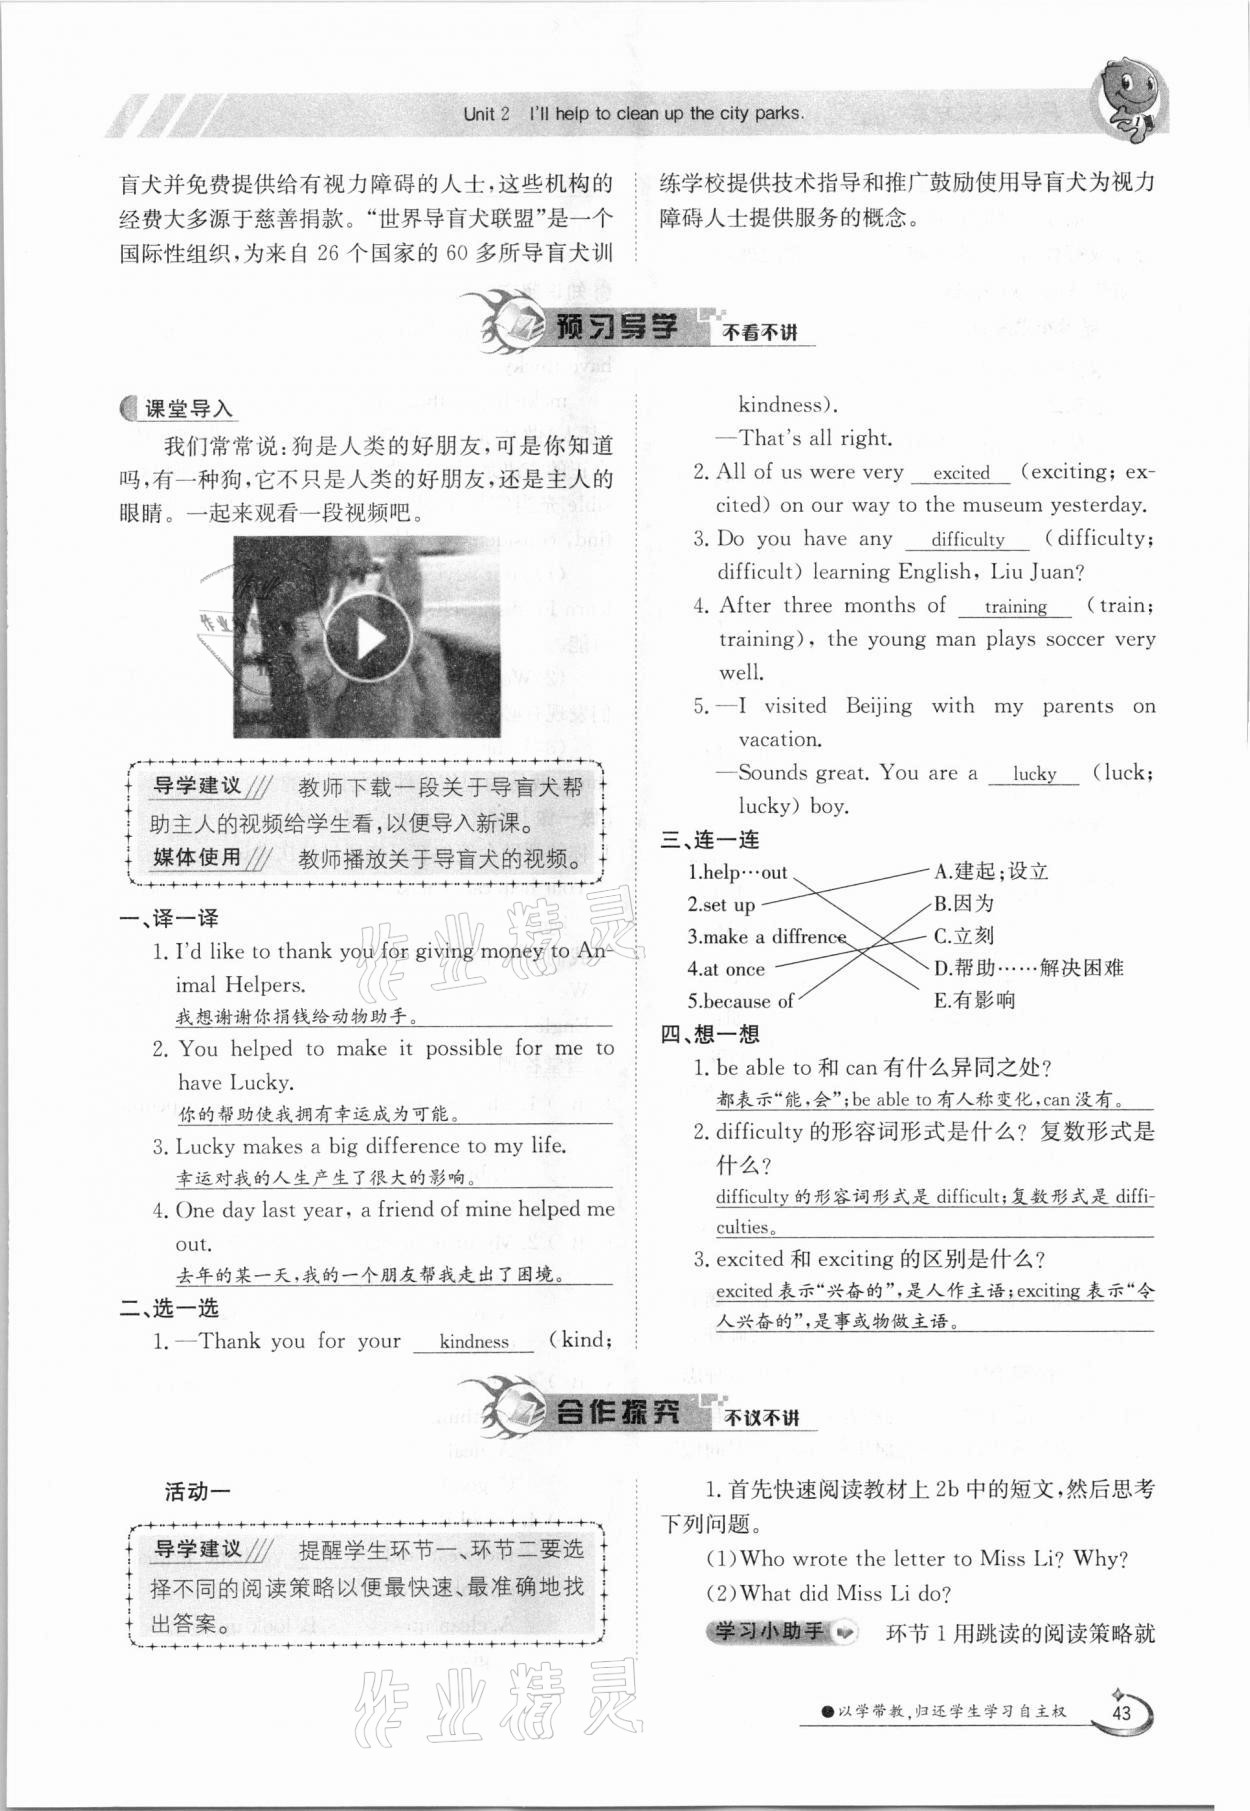 Unit 2 I'll help to clean up the city parks.
盲犬并免费提供给有视力障碍的人士,这些机构的
经费大多源于慈善捐款。“世界导盲犬联盟”是一个
国际性组织,为来自 26 个国家的 60 多所导盲犬训
练学校提供技术指导和推广鼓励使用导盲犬为视力
障碍人士提供服务的概念。
预习导学 不看不讲
课堂导入
我们常常说:狗是人类的好朋友,可是你知道
吗,有一种狗,它不只是人类的好朋友,还是主人的
眼睛。一起来观看一段视频吧。
导学建议 教师下载一段关于导盲犬帮
助主人的视频给学生看,以便导入新课。
媒体使用 教师播放关于导盲犬的视频。
一、译一译
1. I'd like to thank you for giving money to An-
imal Helpers.
我想谢谢你捐钱给动物助手。
2. You helped to make it possible for me to
have Lucky.
你的帮助使我拥有幸运成为可能。
3. Lucky makes a big difference to my life.
幸运对我的人生产生了很大的影响。
4. One day last year, a friend of mine helped me
out.
去年的某一天,我的一个朋友帮我走出了困境。
二、选一选
1. —Thank you for your kindness (kind;
kindness).
—That's all right.
2. All of us were very excited (exciting; ex-
cited) on our way to the museum yesterday.
3. Do you have any difficulty (difficulty;
difficult) learning English, Liu Juan?
4. After three months of training (train;
training), the young man plays soccer very
well.
5. —I visited Beijing with my parents on
vacation.
—Sounds great. You are a lucky (luck;
lucky) boy.
三、连一连
1.help…out A.建起;设立
2.set up B.因为
3.make a diffrence C.立刻
4.at once D.帮助……解决困难
5.because of E.有影响
四、想一想
1. be able to 和 can 有什么异同之处?
都表示“能,会”;be able to 有人称变化,can 没有。
2. difficulty 的形容词形式是什么? 复数形式是
什么?
difficulty 的形容词形式是 difficult;复数形式是 diffi-
culties。
3. excited 和 exciting 的区别是什么?
excited 表示“兴奋的”,是人作主语;exciting 表示“令
人兴奋的”,是事或物做主语。
合作探究 不议不讲
活动一
导学建议 提醒学生环节一、环节二要选
择不同的阅读策略以便最快速、最准确地找
出答案。
1. 首先快速阅读教材上 2b 中的短文,然后思考
下列问题。
(1)Who wrote the letter to Miss Li? Why?
(2)What did Miss Li do?
学习小助手 环节 1 用跳读的阅读策略就
●以学带教,归还学生学习自主权
43
作业精灵
作业精灵